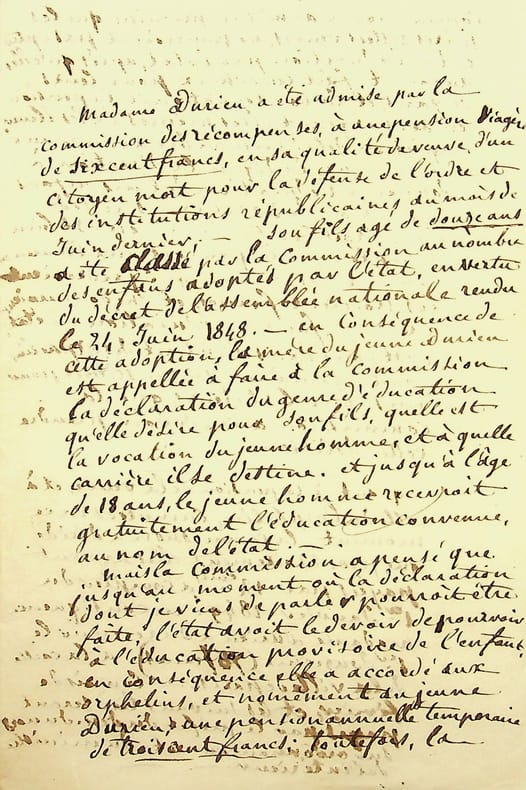 Madame Durieu a été admise par la
commission des récompenses, à une pension viagère
de six cent francs, en sa qualité de veuve d'un
citoyen mort pour la défense de l'ordre et
des institutions républicaines au mois de
Juin dernier, — son fils agé de douze ans
a été classé par la Commission au nombre
des enfans adoptés par l'état, en vertu
du décret de l'assemblée nationale rendu
le 24 Juin 1848. — en conséquence de
cette adoption, la mère du jeune durieu
est appellée à faire à la Commission
la déclaration du genre d'éducation
qu'elle désire pour son fils, quelle est
la vocation du jeune homme, et à quelle
carrière il se destine. et jusqu'à l'âge
de 18 ans, le jeune homme recevroit
gratuitement l'éducation convenue,
au nom de l'état. —
mais la commission a pensé que
jusqu'au moment où la déclaration
dont je viens de parler pourroit être
faite, l'état avoit le devoir de pourvoir
à l'éducation provisoire de l'enfant.
en conséquence elle a accordé aux
orphelins, et nomément au jeune
Durieu, une pension annuelle temporaire
de trois cent francs; toutefois, la